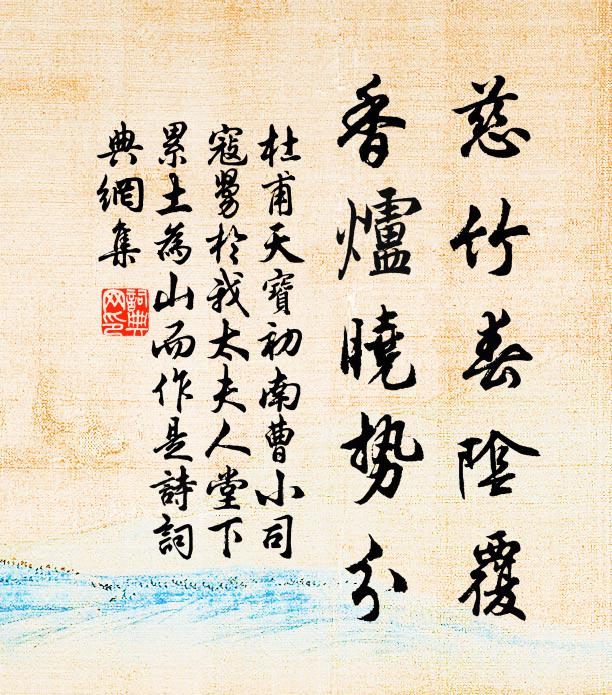 慈竹春陰覆
香爐曉勢分
杜甫天寶初南曹小司
寇舅於我太夫人堂下
累土為山而作是詩詞
典網集
詞典
网印